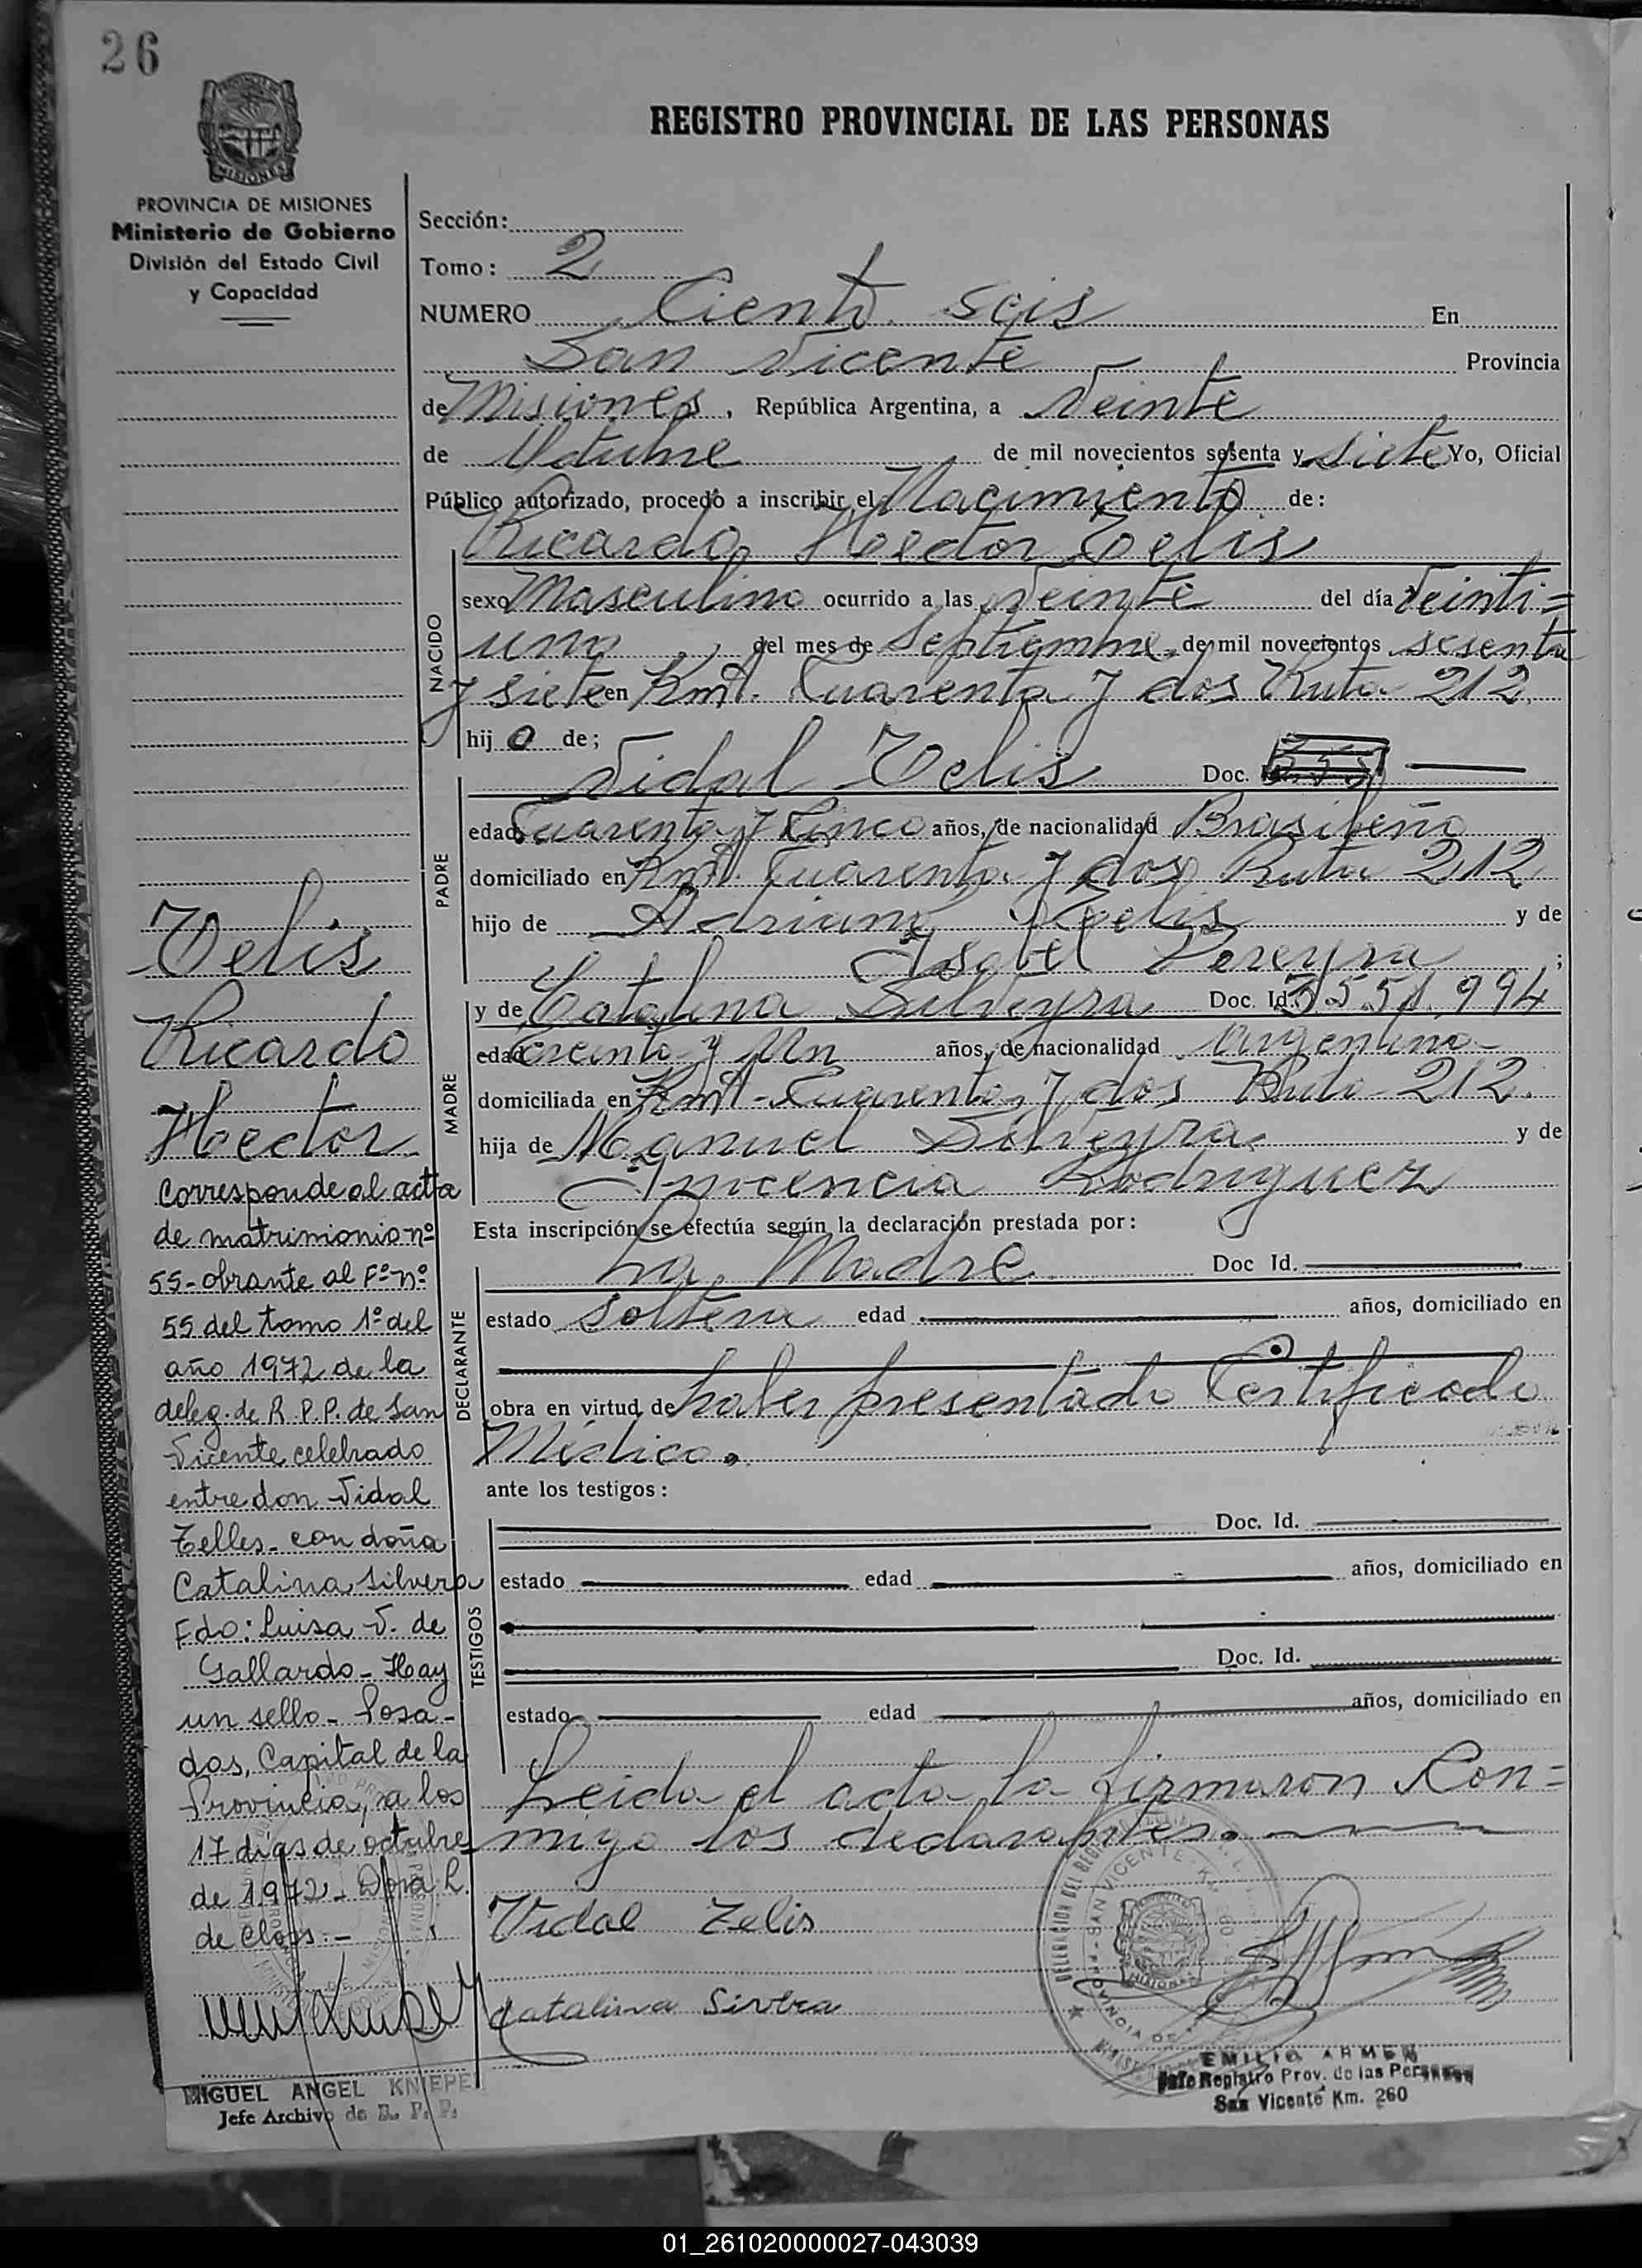 26
REGISTRO PROVINCIAL DE LAS PERSONAS
MISIONES
PROVINCIA DE MISIONES
Ministerio de Gobierno
División del Estado Civil
y Capacidad
Sección:
Tomo: 2
NUMERO Ciento seis En
San Vicente Provincia
de Misiones, República Argentina, a Veinte
de Octubre de mil novecientos sesenta y siete Yo, Oficial
Público autorizado, procedo a inscribir el Nacimiento de:
Ricardo Hector Telis
NACIDO
sexo Masculino ocurrido a las veinte del día Veinti=
uno del mes de Septiembre de mil novecientos sesenta
y siete en Kmt. Cuarenta y dos Ruta 212
hijo de;
PADRE
Vidal Telis Doc.
edad Cuarenta y Cinco años, de nacionalidad Brasileño
domiciliado en Kmt. Cuarenta y dos Ruta 212
hijo de Adriano Telis y de
Isabel Pereyra ;
MADRE
y de Catalina Silveyra Doc. Id. 3.551.994
edad Treinta y Un años, de nacionalidad Argentina
domiciliada en Kmt. Cuarenta y dos Ruta 212.
hija de Manuel Silveyra y de
Inocencia Rodriguez
Esta inscripción se efectúa según la declaración prestada por:
DECLARANTE
La Madre Doc Id.
estado soltera edad años, domiciliado en
obra en virtud de haber presentado Certificado
Médico.
ante los testigos:
TESTIGOS
Doc. Id.
estado edad años, domiciliado en
Doc. Id.
estado edad años, domiciliado en
Leida el acta la firmaron Con=
migo los declarantes.
Vidal Zelis
Catalina
EMILIO ARMEN
Jefe Registro Prov. de las Personas
San Vicente Km. 260
Telis
Ricardo
Hector
Corresponde al acta
de matrimonio nº
55-obrante al Fº nº
55 del tomo 1º del
año 1972 de la
deleg. de R.P.P. de San
Vicente celebrado
entre don Vidal
Telles- con doña
Catalina Silvera
Fdo: Luisa V. de
Gallardo- Hay
un sello- Posa-
das, Capital de la
Provincia, a los
17 días de octubre
de 1972- Dora L.
de Claps.-
MIGUEL ANGEL KNIEPE
Jefe Archivo de R. P. P.
01_261020000027-043039